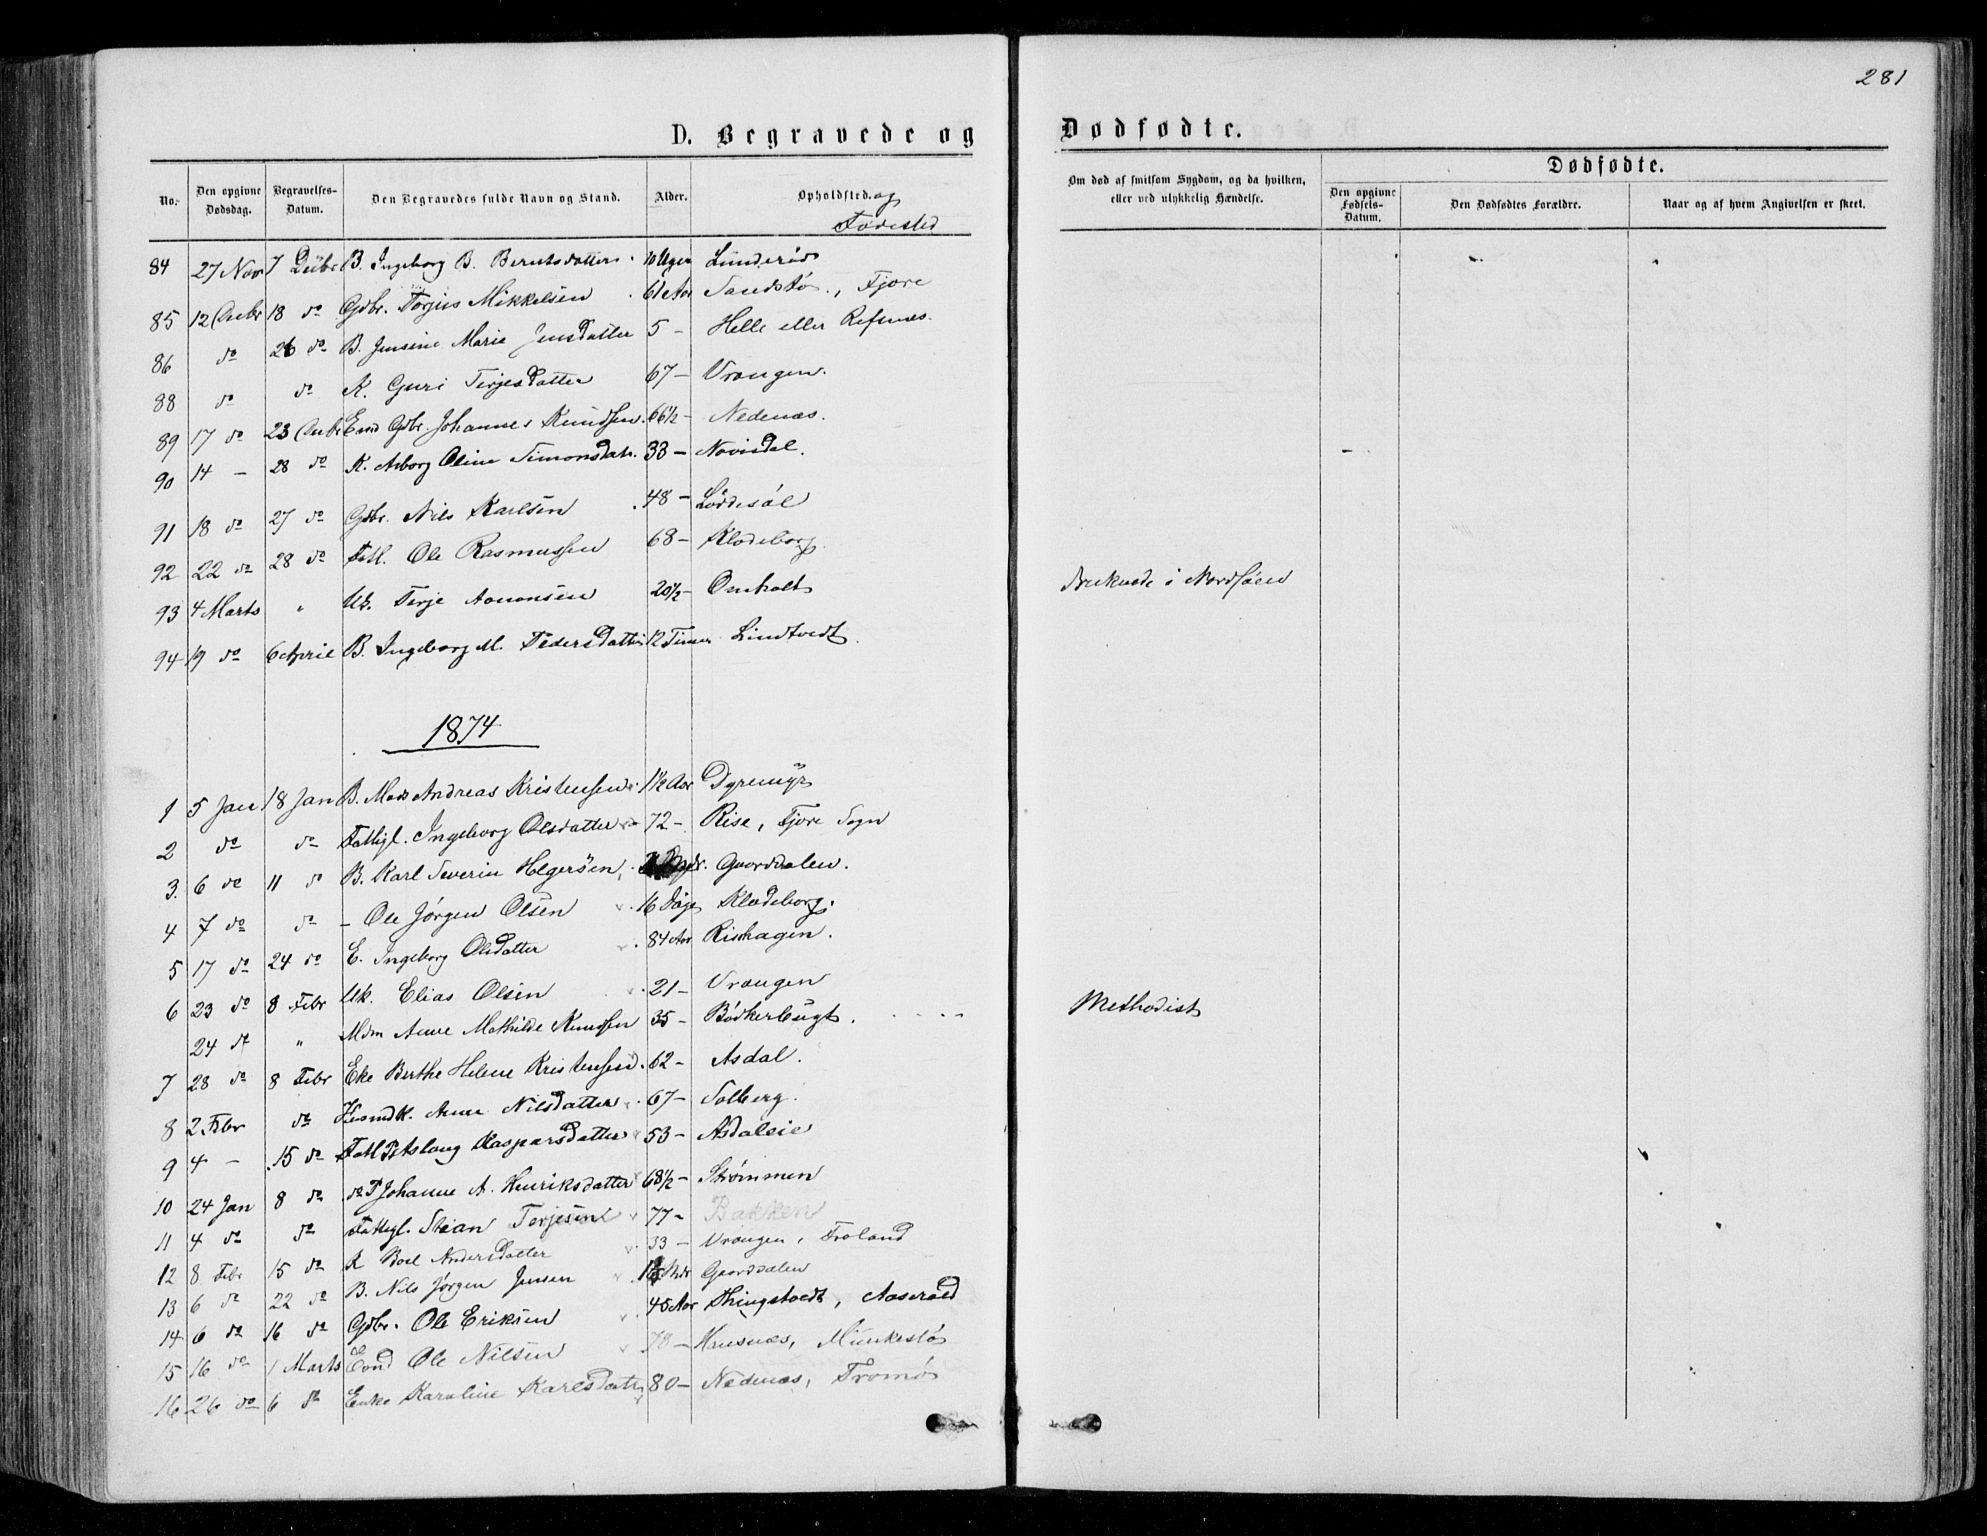 281
D. Begravede og Dødfødte.
No. Den opgivne Dødsdag. Begravelses-Datum. Den Begravedes fulde Navn og Stand. Alder. Opholdssted. og Fødested
Om død af smitsom Sygdom, og da hvilken, eller ved ulykkelig Hændelse.
Dødfødte.
Den opgivne Fødsels-Datum. Den Dødfødtes Forældre. Naar og af hvem Angivelsen er skeet.
84 27 Nov 7 B. Ingeborg B. Berntsdatter 10 Uger Lunderød
85 12 18 do Gdbr. Torjus Mikkelsen 61 Aar Sandstø, Fjære
86 do 26 do B. Jensine Marie Jensdatter 5 - Helle eller Refsnæs.
88 do do K. Guri Terjesdatter 67 - Vrængen.
89 17 do 23 Gdbr. Johannes Knudsen 66½ - Nedenæs.
90 14 - 28 do K. Asborg Oline Simonsdatr. 33 - Novisdal.
91 18 do 27 do Gdbr. Nils Karlsen 48 - Løddesøl
92 22 do 28 do Fatl. Ole Rasmussen 68 - Klodeborg
93 4 Marts " Uk. Terje Aanonsen 20½ - Omholt Druknede i Nordsøen
94 19 do 6 April B. Ingeborg M. Pedersdatter 12 Timer Lindtvedt.
1874
1 5 Jan 18 Jan B. Mads Andreas Kristensen 1½ Aar Dyremyr
2 do do Fattigl. Ingeborg Olsdatter 72 - Rise, Fjære Sogn
3. 6 do 11 do B. Karl Severin Holgersen, Gaarddalen.
4 7 do do - Ole Jørgen Olsen 16 Dage Klodeborg.
5 17 do 24 do E. Ingeborg Olsdatter 84 Aar Rishagen.
6 23 do 8 Febr Uk. Elias Olsen 21 - Vrængen
24 do " Mdm Anne Mathilde Knudsen 35 - Bødkerbugt. Methodist
7 28 do 8 Febr Eke Berthe Helene Kristensen 62 - Asdal.
8 2 Febr do Anne Nilsdatter 67 - Solberg.
9 4 - 15 do Aslaug Kaspersdatter 53 - Asdaleie
10 24 Jan 8 do Johanne A. Henriksdatter 68½ - Strømmen
11 4 do do Fattigl. Stian Terjesen 77 - Bakken
12 8 Febr 15 do K Boel Andersdatter 33 - Vrængen, Froland
13 6 do 22 do B. Nils Jørgen Jensen Gaarddalen
14 6 do 16 do Gdbr. Ole Eriksen 45 Aar Thingstvedt, Aaserald
15 16 do 1 Marts Ole Nilsen 78 - Hansnæs,
16 26 do 6 do Enke Karoline Karlsdatter 80 - Nedenæs, Tromø